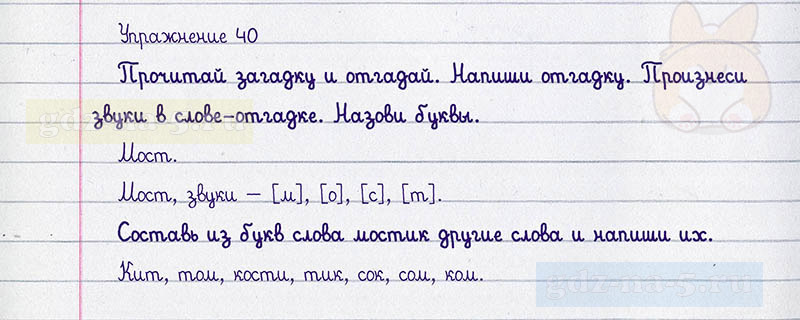 Упражнение 40
Прочитай загадку и отгадай. Напиши отгадку. Произнеси
звуки в слове-отгадке. Назови буквы.
gdz-na-5.ru
Мост.
Мост, звуки – [м], [о], [с], [т].
Составь из букв слова мостик другие слова и напиши их.
Кит, том, кости, тик, сок, сом, ком.
gdz-na-5.ru